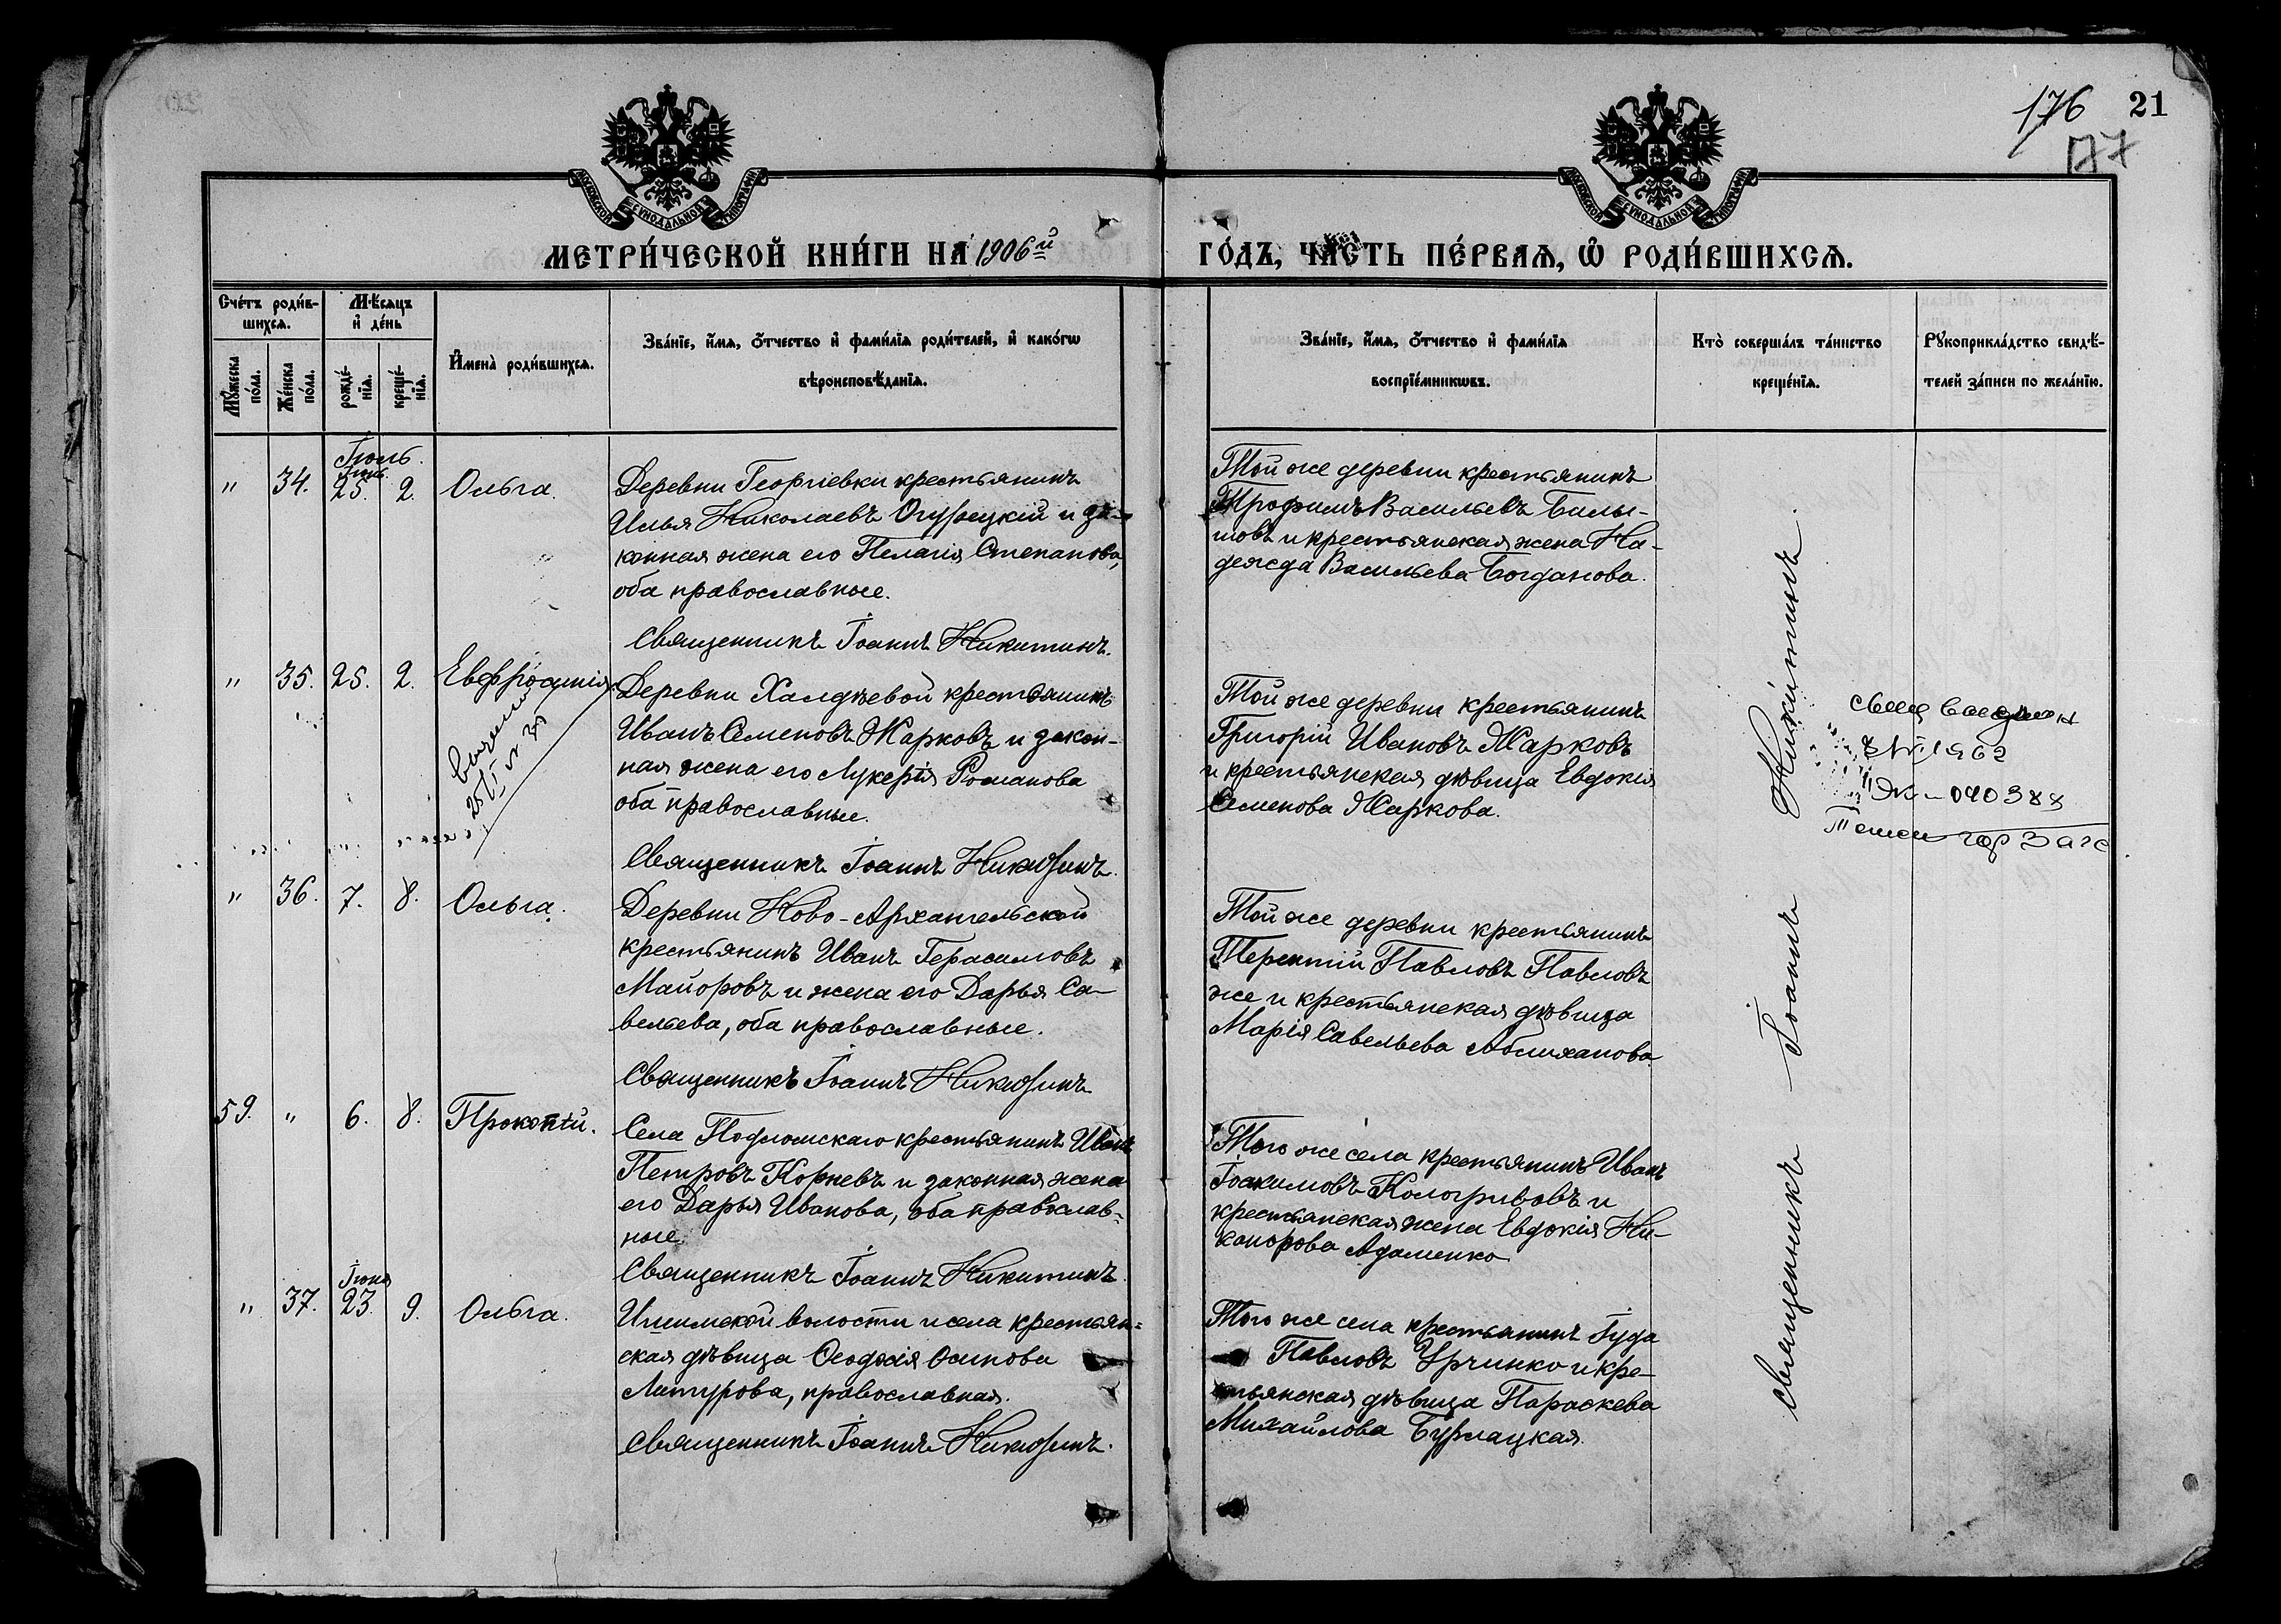 176 21
177
МОСКОВСКОЙ СѴНОДАЛЬНОЙ ТИПОГРАФІИ
МОСКОВСКОЙ СѴНОДАЛЬНОЙ ТИПОГРАФІИ
МЕТРИ́ЧЕСКОЙ КНИ́ГИ НА 1906й ГО́ДЪ, ЧАСТЬ ПЕ́РВАѦ, Ѡ҆ РОДИ́ВШИХСѦ.
Сче́тъ роди́в-
шихсѧ.
Мꙋ́жеска по́ла.
Же́нска по́ла.
Мѣ́сѧцъ
и҆ де́нь
рожде́-
нїѧ.
креще́-
нїѧ.
И҆мена̀ роди́вшихсѧ.
Зва́нїе, и҆́мѧ, ѻ҆́тчество и҆ фами́лїѧ роди́телей, и҆ како́гѡ
вѣроисповѣ́данїѧ.
Зва́нїе, и҆́мѧ, ѻ҆́тчество и҆ фами́лїѧ
воспрїе́мникѡвъ.
Кто̀ соверша́лъ та́инство
креще́нїѧ.
Рꙋкоприкла́дство свидѣ́-
телей за́писи по жела́нїю.
Іюль.
Іюнь
" 34. 25. 2. Ольга.
Деревни Георгіевки крестьянинъ
Илья Николаевъ Огурецкій и за-
конная жена его Пелагія Степанова,
оба православные.
Священникъ Іоаннъ Никитинъ.
Той же деревни крестьянинъ
Трофимъ Васильевъ Балы-
шовъ и крестьянская жена На-
дежда Васильева Богданова.
" 35. 25. 2. Евфросинія.
25/I № 35
Деревни Халдѣевой крестьянинъ
Иванъ Семеновъ Жарковъ и закон-
ная жена его Лукерія Романова
оба православные.
Священникъ Іоаннъ Никитинъ.
Той же деревни крестьянинъ
Григорій Ивановъ Жарковъ
и крестьянская дѣвица Евдокія
Семенова Жаркова.
1962
040388
гор Загс
" 36. 7. 8. Ольга.
Деревни Ново-Архангельской
крестьянинъ Иванъ Герасимовъ
Майоровъ и жена его Дарья Са-
вельева, оба православные.
Священникъ Іоаннъ Никитинъ
Той же деревни крестьянинъ
Терентій Павловъ Павловъ
же и крестьянская дѣвица
Марія Савельева
59. " 6. 8. Прокопій.
Села Подломскаго крестьянинъ Иванъ
Петровъ Корневъ и законная жена
его Дарья Иванова, оба православ-
ные.
Священникъ Іоаннъ Никитинъ
Того же села крестьянинъ Иванъ
Іоакимовъ Кологривовъ и
крестьянская жена Евдокія Ни-
канорова Адаменко
Іюня
" 37. 23. 9. Ольга.
Ишимской волости и села крестьян-
ская дѣвица Ѳеодосія Осипова
православная.
Священникъ Іоаннъ Никитинъ.
Того же села крестьянинъ Іуда
Павловъ Урчинко и кре-
стьянская дѣвица Параскева
Михайлова Бурлацкая.
Священникъ Іоаннъ Никитинъ.